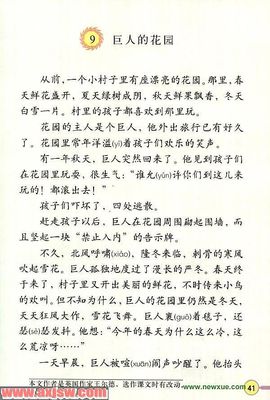 9 巨人的花园
从前,一个小村子里有座漂亮的花园。那里,春
天鲜花盛开,夏天绿树成阴,秋天鲜果飘香,冬天
白雪一片。村里的孩子都喜欢到那里玩。
花园的主人是个巨人,他外出旅行已有好久
了。花园里常年洋溢(yì)着孩子们欢乐的笑声。
有一年秋天,巨人突然回来了。他见到孩子们
在花园里玩耍,很生气:“谁允(yǔn)许你们到这儿来
玩的!都滚出去!”
孩子们吓坏了,四处逃散。
赶走孩子以后,巨人在花园周围砌起围墙,而
且竖起一块“禁止入内”的告示牌。
不久,北风呼啸(xiào),隆冬来临,刺骨的寒风
吹起雪花。巨人孤独地度过了漫长的严冬。春天终
于来了,村子里又开出美丽的鲜花,不时传来小鸟
的欢叫。但不知为什么,巨人的花园里仍然是冬天,
天天狂风大作,雪花飞舞。巨人裹(guǒ)着毯子,还
瑟(sè)瑟发抖。他想:“今年的春天为什么这么冷,这
么荒凉呀……”
一天早晨,巨人被喧(xuān)闹声吵醒了。他抬头
本文作者是英国作家王尔德,选作课文时有改动。
www.newxue.com 41
www.axjsw.com